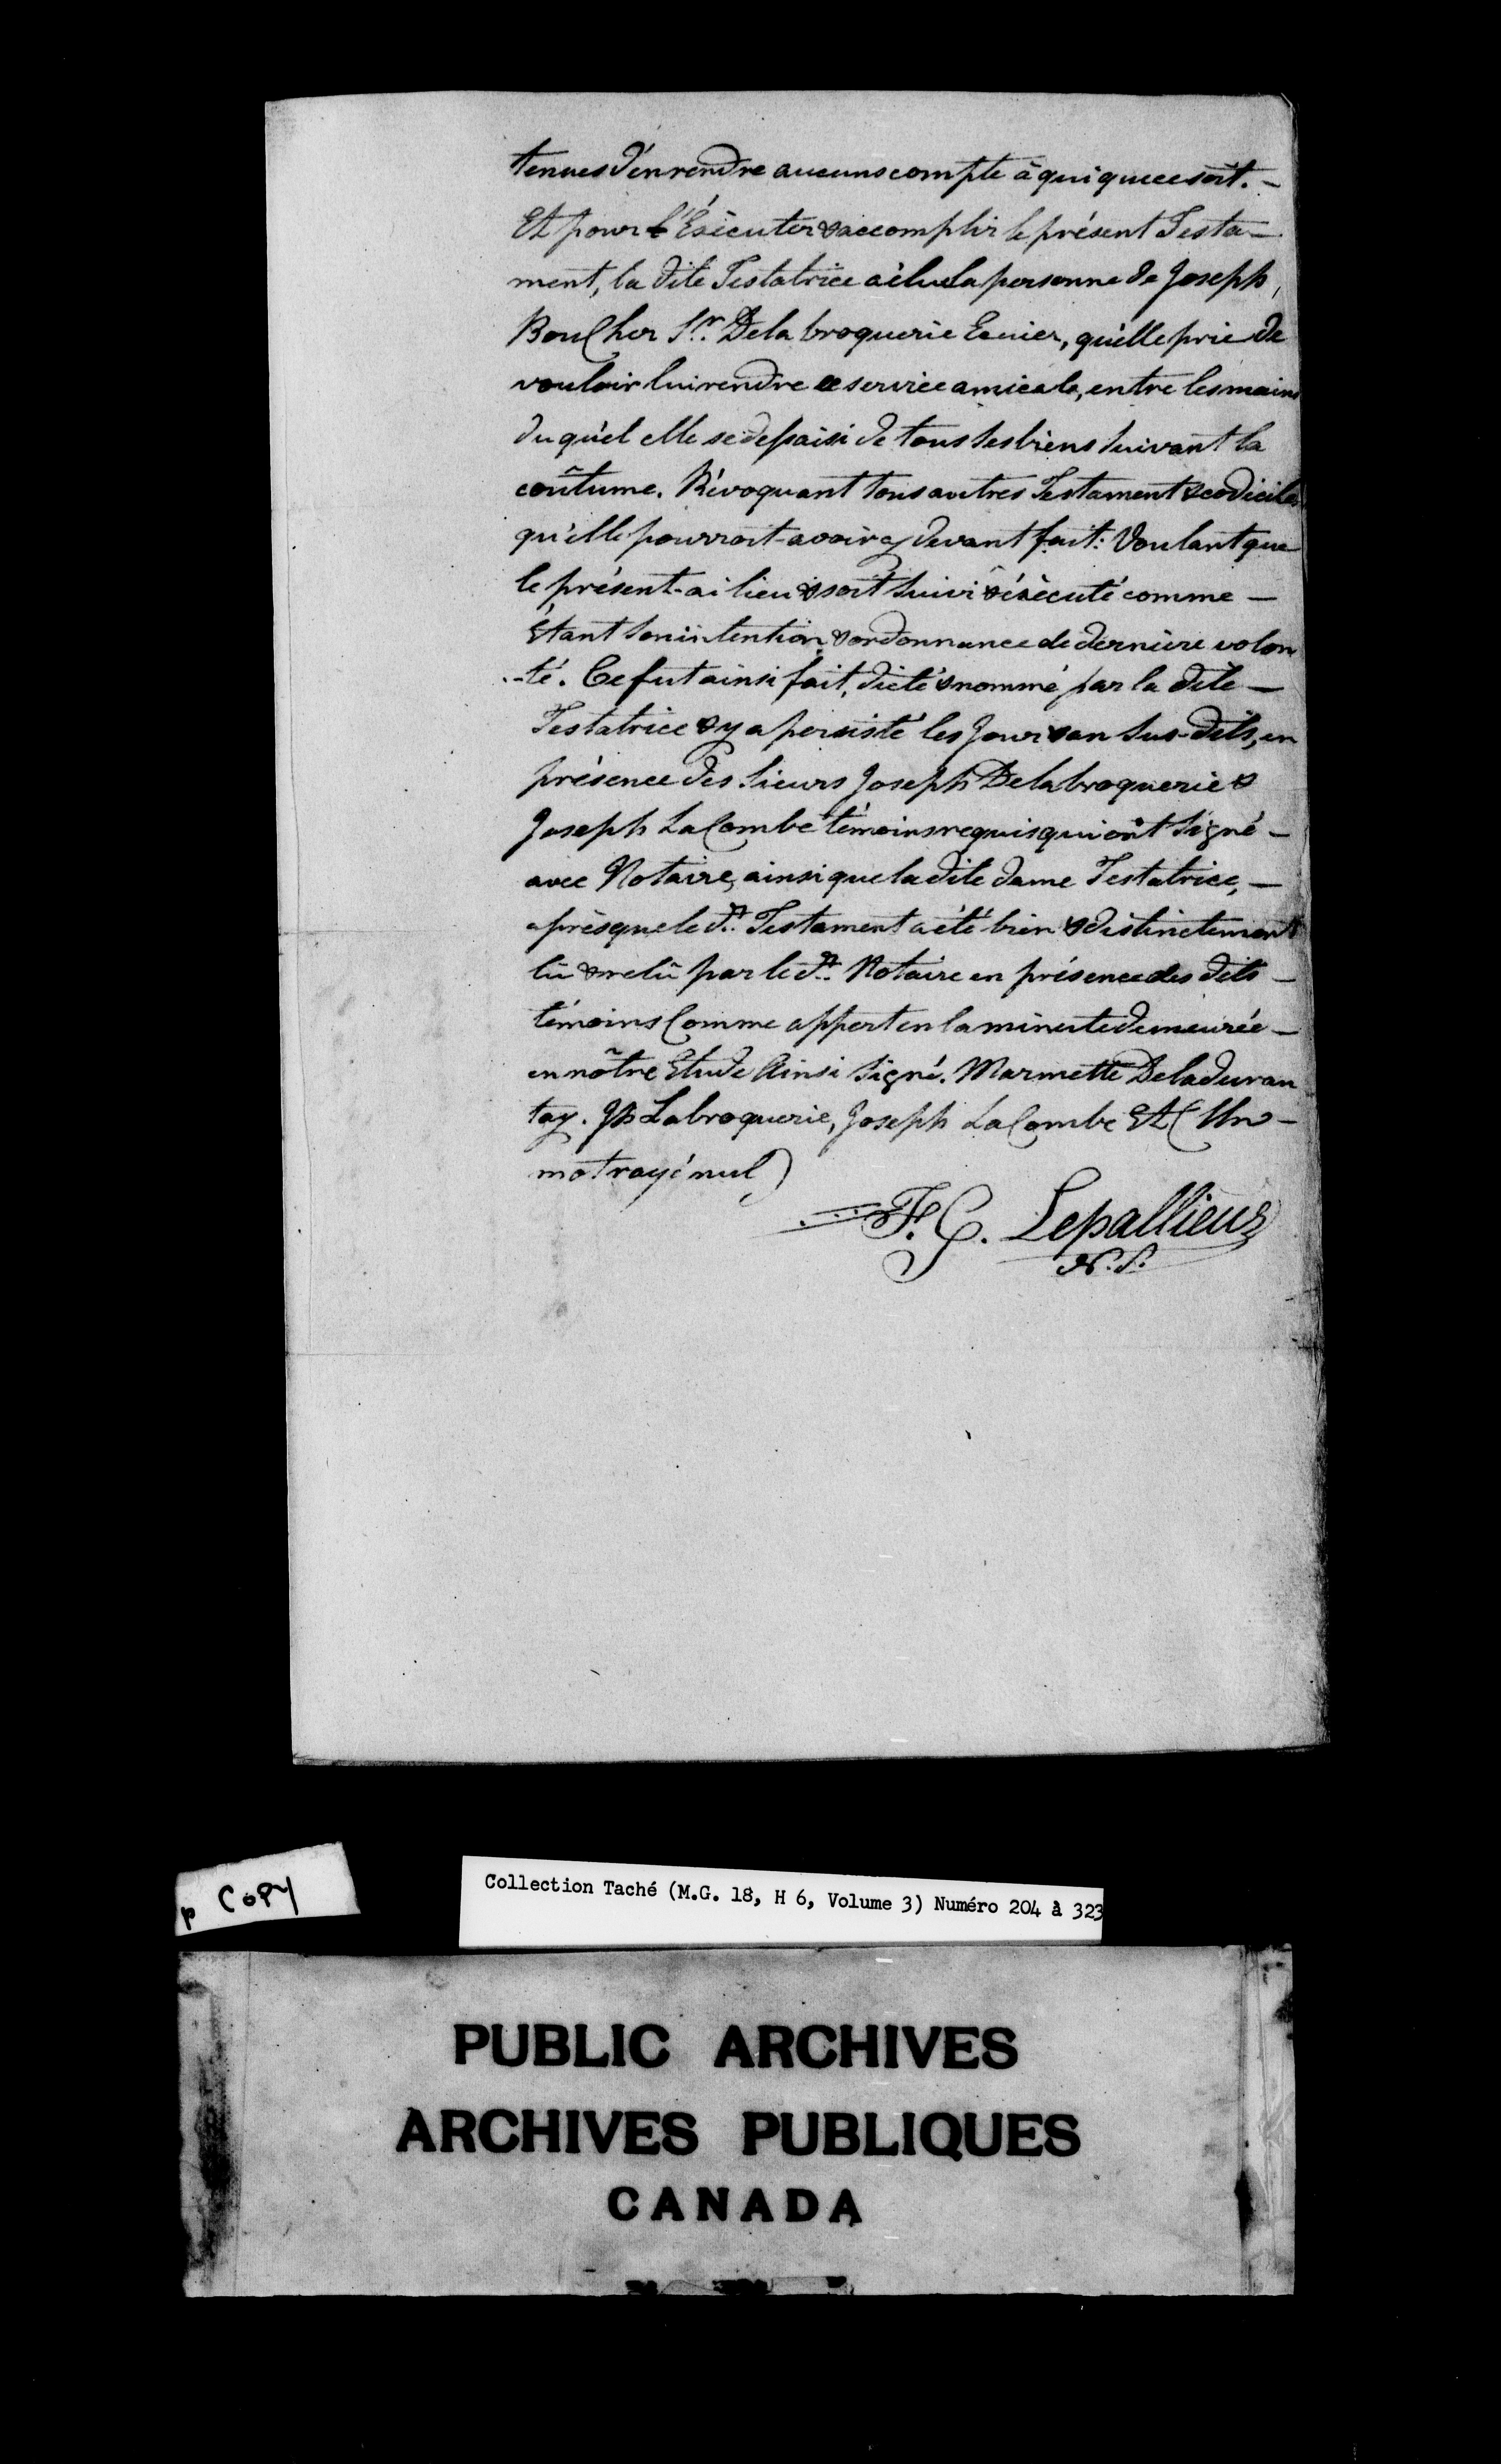 tenues d'en rendre aucuns compte à qui que ce soit. —
Et pour l'Éxécuter & accomplir le présent Testa —
ment, la dite Testatrice a élue la personne de Joseph,
Boucher Sr. Delabroquerie Ecuier, qu'elle prie de
vouloir lui rendre ce service amicale, entre les mains
duquel elle se dessaisi de tous ses biens suivant la
coûtume. Révoquant tous autres Testament & codiciles
qu'elle pourroit avoir cy devant fait: Voulant que
le présent ai lieu & soit suivi & éxécuté comme —
Étant son intention & ordonnance de dernière volon
-té. Ce fut ainsi fait, dicté & nommé par la dite —
Testatrice & y a persisté les Jour & an sus-dits, en
présence des Sieurs Joseph Delabroquerie &
Joseph LaCombe témoins requis qui ont signé —
avec Notaire, ainsi que la dite dame Testatrice, —
après que le dt. Testament a été bien & distinctement
lû & relû par le dt. Notaire en présence des dits —
témoins Comme appert en la minute demeurée —
en nôtre Etude Ainsi signé. Marmette Deladuran
tay. Jh Labroquerie, Joseph LaCombe Et (Un —
mot rayé nul)
F. C. Lepallieur
N. P.
p COPY
Collection Taché (M.G. 18, H 6, Volume 3) Numéro 204 à 323
PUBLIC ARCHIVES
ARCHIVES PUBLIQUES
CANADA